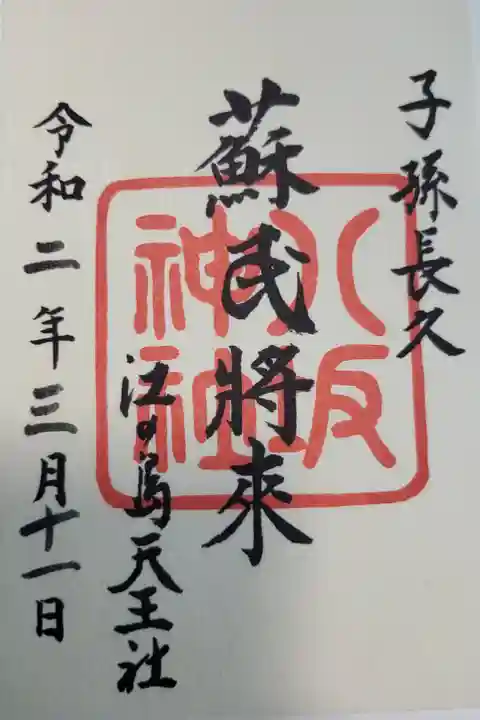 子孫長久
蘇民將來
八坂
神社
江の島天王社
令和二年三月十一日